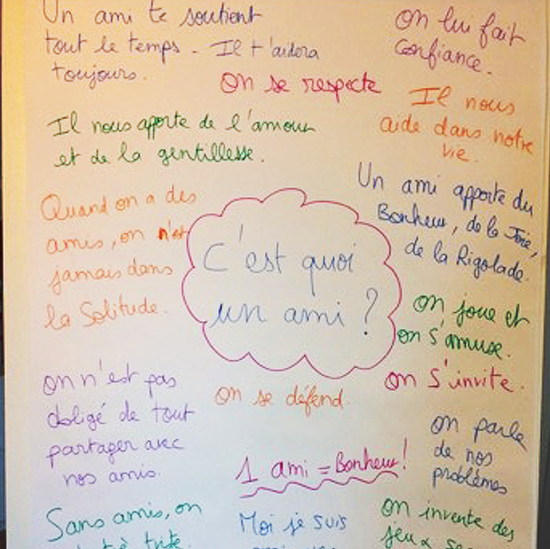 Un ami te soutient
tout le temps - Il t'aidera
toujours.
On lui fait
confiance.
On se respecte
Il nous
aide dans notre
vie.
Il nous apporte de l'amour
et de la gentillesse.
Un ami apporte du
Bonheur, de la Joie,
de la Rigolade.
Quand on a des
amis, on n'est
jamais dans
la Solitude.
C'est quoi
un ami ?
On joue et
on s'amuse.
On s'invite.
On n'est pas
obligé de tout
partager avec
nos amis.
On se défend.
On parle
de nos
problèmes
1 ami = Bonheur !
Sans amis, on
Moi je suis
On invente des
jeux